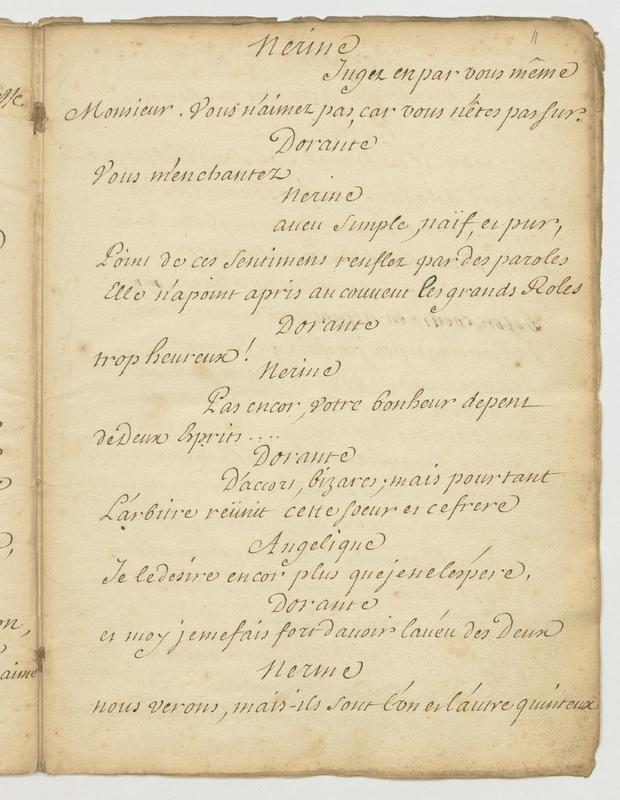 11
Nerine
Jugez en par vous même
Monsieur. Vous n'aimez pas, car vous n'êtes pas sur.
Dorante
Vous m'enchantez
Nerine
aveu simple, naïf, et pur,
Point de ces sentimens renflez par des paroles
Elle n'a point apris au couvent les grands Roles
Dorante
trop heureux!
Nerine
Pas encor, votre bonheur depent
de Deux Esprits....
Dorante
D'accors, bizares; mais pourtant
L'arbitre réünit cette soeur et ce frere
Angelique
Je le désire encor plus que je ne l'espére,
Dorante
et moy je me fais fort d'avoir l'avéu des Deux
Nerine
nous verons, mais-ils sont l'un et l'autre quinteux